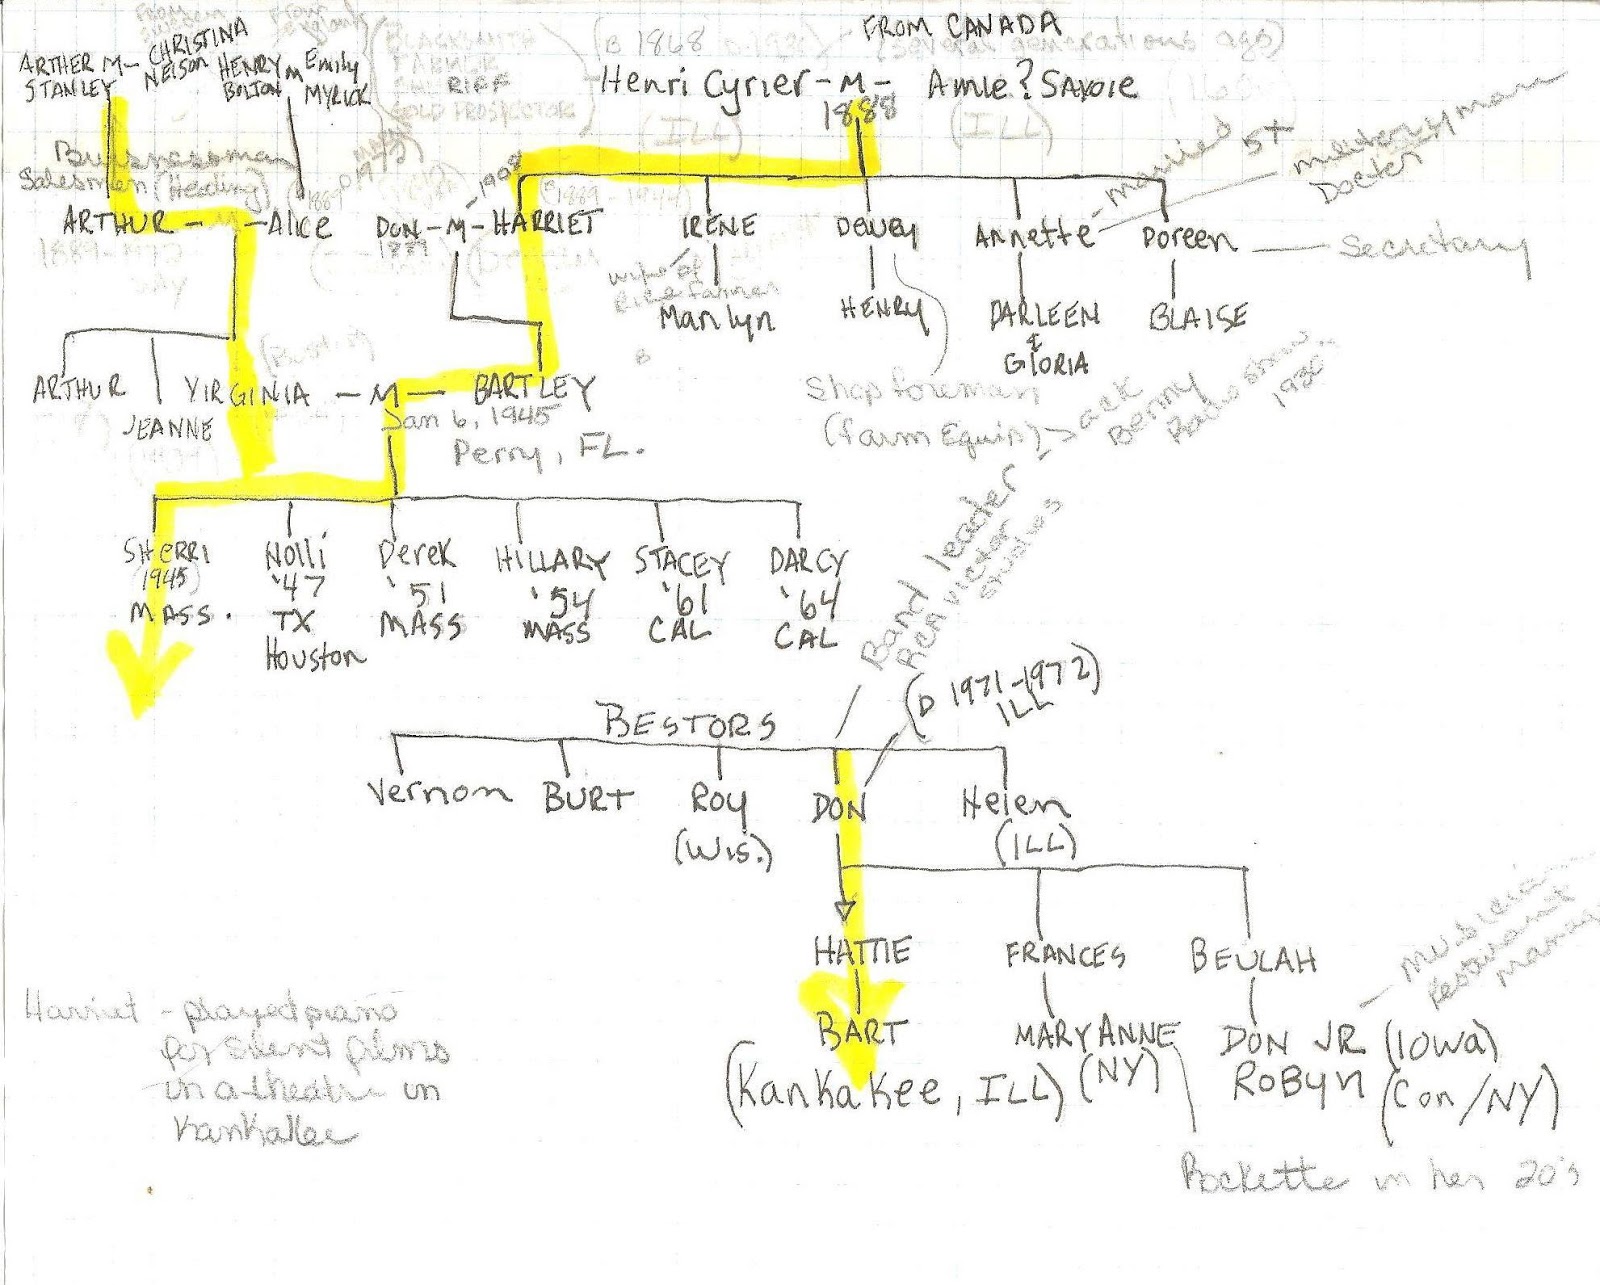 FROM CANADA
ARTHER M- CHRISTINA
STANLEY NELSON
HENRY M Emily
BOLTON MYRICK
BLACKSMITH
SHERIFF
GOLD PROSPECTORS
(B 1868
(several generations ago)
Henri Cyrier - M - Amie? SAVOIE
1888
(ILL) (ILL)
Businessman
Salesmen (Heading)
ARTHUR - M - ALICE
DON - M - HARRIET
1908
(1889-1944)
IRENE
DEWEY
ANNette
Doreen
married 5x
military man
Doctor
Secretary
wife of
Rice farmer
Marilyn
HENRY
DARLEEN
&
GLORIA
BLAISE
ARTHUR
JEANNE
VIRGINIA - M - BARTLEY
Jan 6, 1945
Perry, FL.
Shop foreman
(farm Equip)
SHERRI
(1945)
MASS.
Nolli
'47
TX
Houston
Derek
'51
MASS
HILLARY
'54
MASS
STACEY
'61
CAL
DARCY
'64
CAL
Band leader
RCA Victor
Jack
Benny
Radio show
(D 1971-1972)
ILL
BESTORS
Vernon
BURT
Roy
(Wis.)
DON
Helen
(ILL)
HATTIE
FRANCES
BEULAH
BART
(Kankakee, ILL)
MARY ANNE
(NY)
DON JR (Iowa)
ROBYN (Con/NY)
musician
Restaurant
Rockette in her 20's
Harriet - played piano
for silent films
in a theatre in
Kankakee